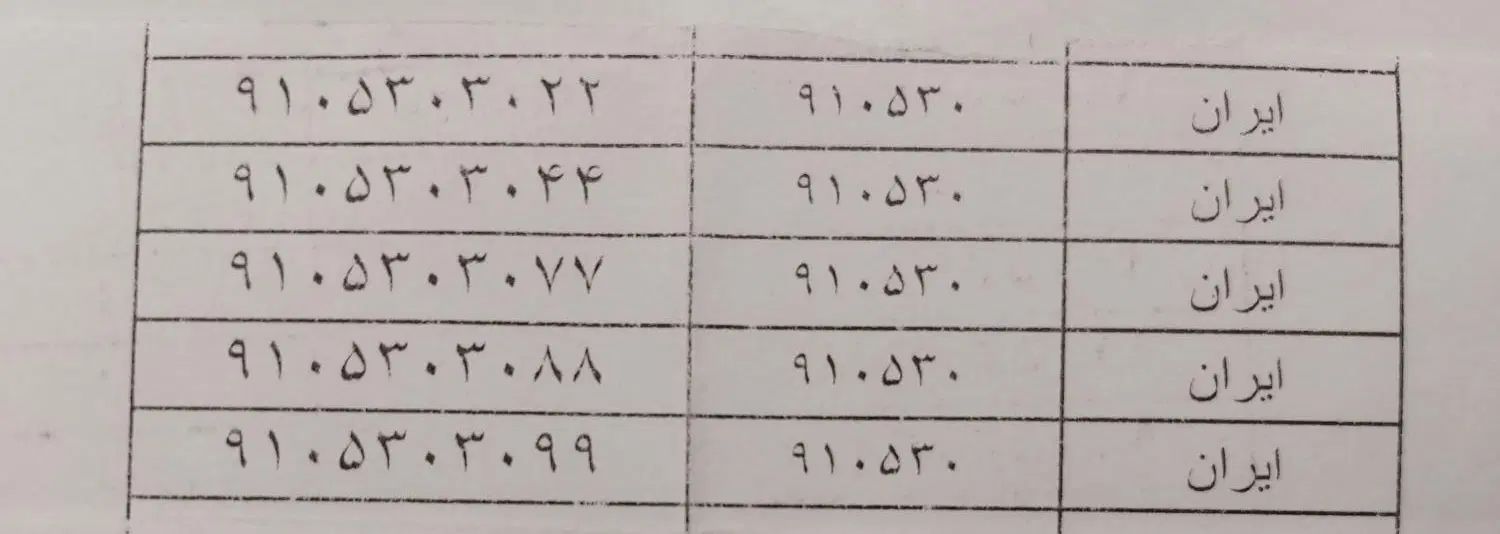 ایران ۹۱۰۵۳۰ ۹۱۰۵۳۰۳۰۲۲
ایران ۹۱۰۵۳۰ ۹۱۰۵۳۰۳۰۴۴
ایران ۹۱۰۵۳۰ ۹۱۰۵۳۰۳۰۷۷
ایران ۹۱۰۵۳۰ ۹۱۰۵۳۰۳۰۸۸
ایران ۹۱۰۵۳۰ ۹۱۰۵۳۰۳۰۹۹